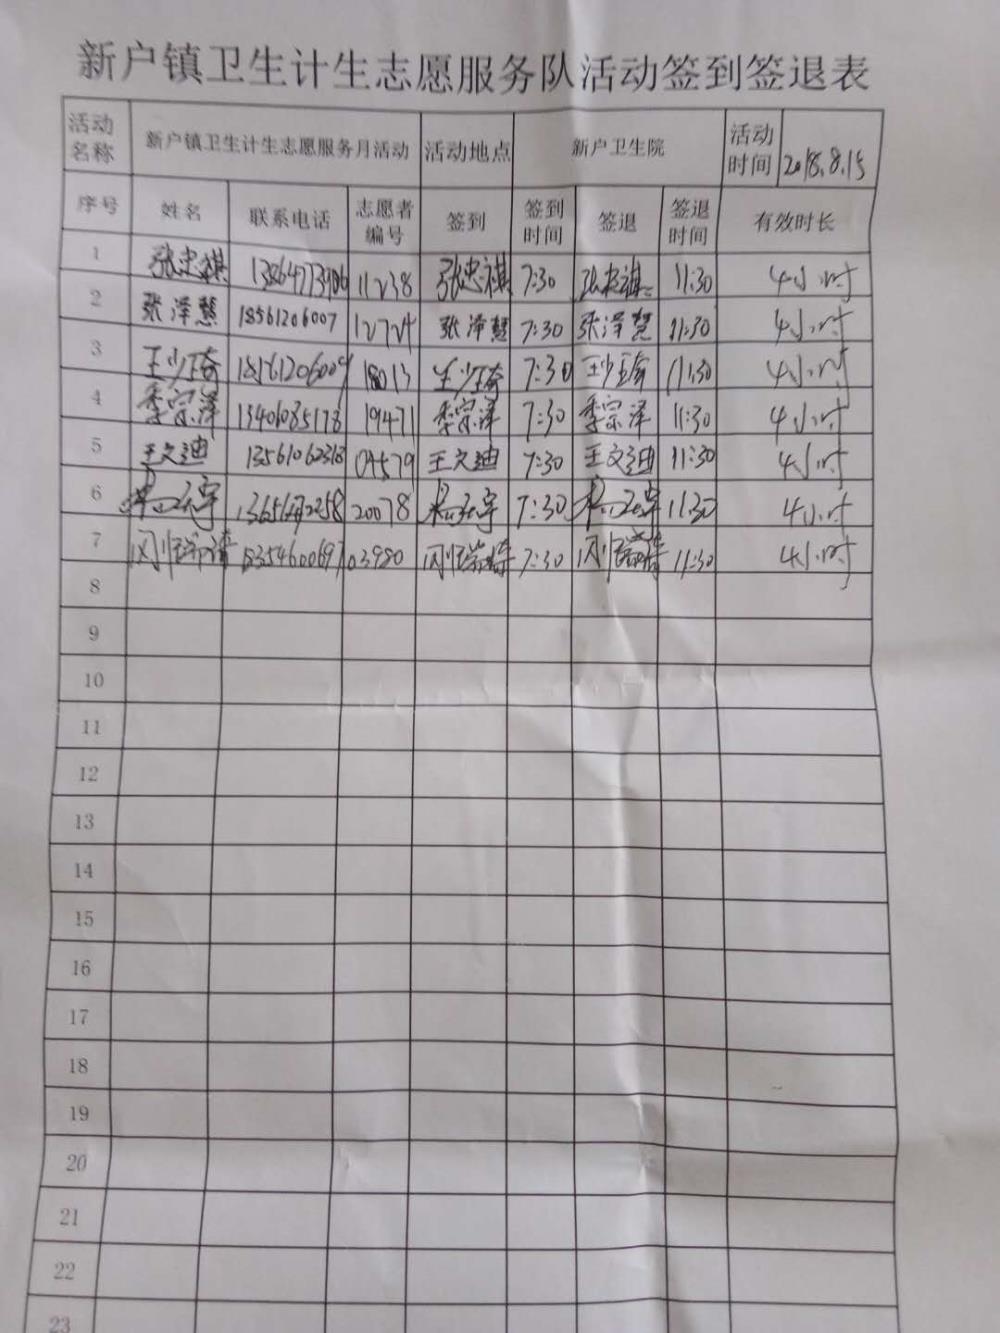 新户镇卫生计生志愿服务队活动签到签退表
活动名称 新户镇卫生计生志愿服务月活动 活动地点 新户卫生院 活动时间 2018.8.15
序号 姓名 联系电话 志愿者编号 签到 签到时间 签退 签退时间 有效时长
1 张忠祺 11238 张忠祺 7:30 张忠祺 11:30 4小时
2 张泽慧 18561206007 12724 张泽慧 7:30 张泽慧 11:30 4小时
3 王少琦 18013 王少琦 7:30 王少琦 11:30 4小时
4 季宗泽 13406035178 19471 季宗泽 7:30 季宗泽 11:30 4小时
5 王文迪 13561062318 04579 王文迪 7:30 王文迪 11:30 4小时
6 20078 7:30 11:30 4小时
7 18354600697 03980 7:30 11:30 4小时
8
9
10
11
12
13
14
15
16
17
18
19
20
21
22
23